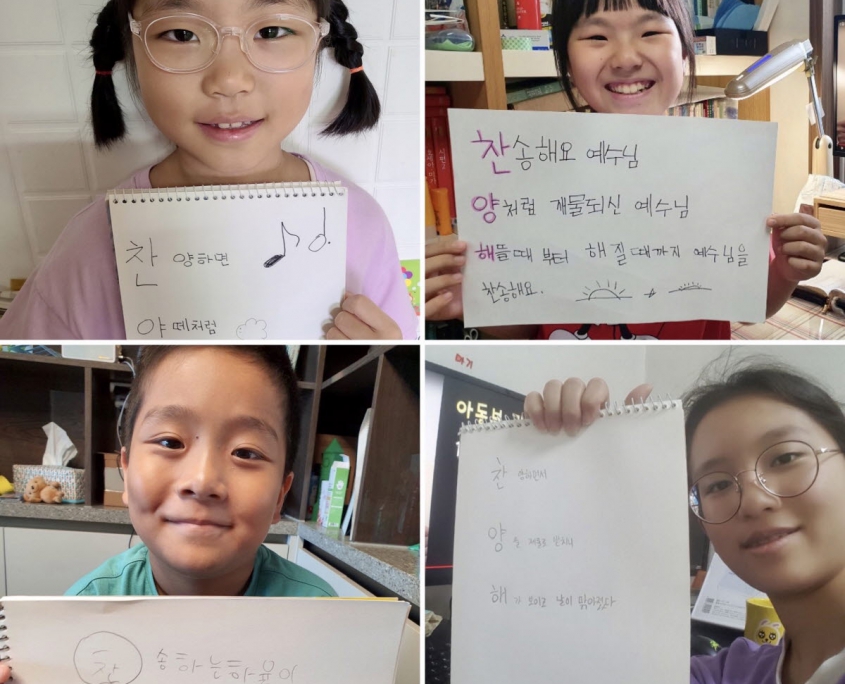 찬 양하면
야 떼처럼
찬송해요 예수님
양처럼 제물되신 예수님
해뜰때 부터 해질때까지 예수님을
찬송해요.
찬 송하는하윤이
아동부
찬
양
해 가 보이고 날이 맑아졌다